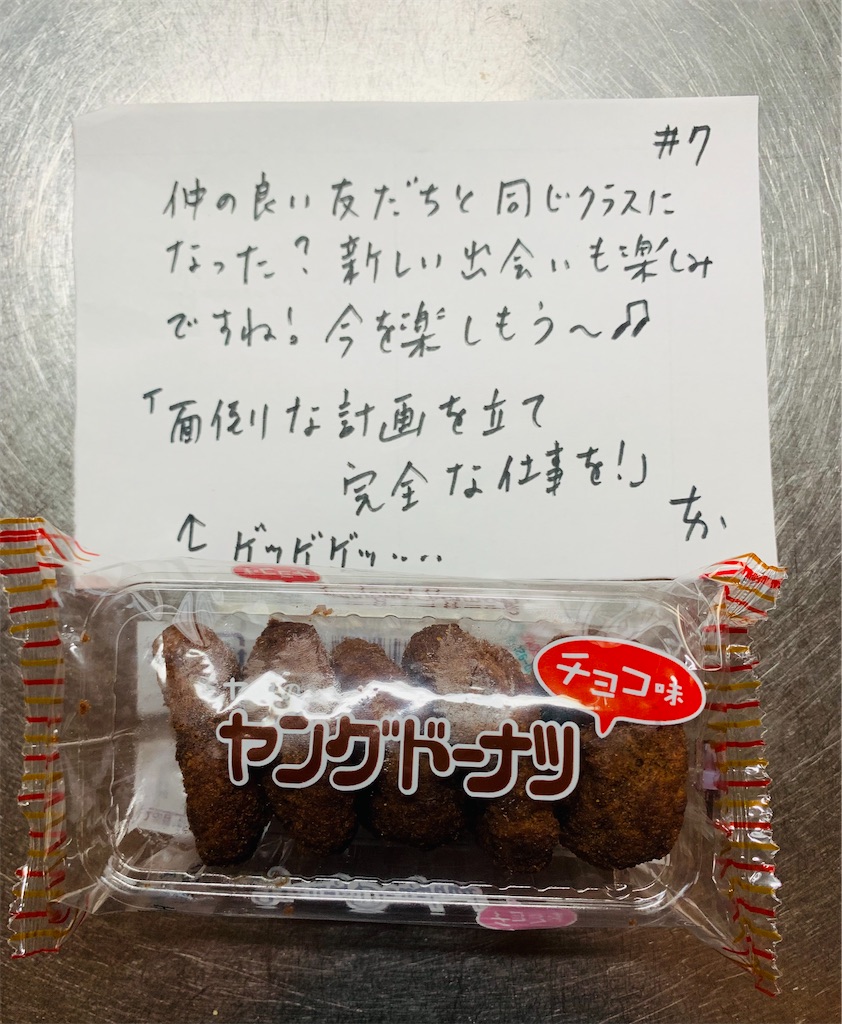 #7
仲の良い友だちと同じクラスに
なった？新しい出会いも楽しみ
ですね！今を楽しもう〜♫
「面倒な計画を立て
完全な仕事を！」
↑ゲッゲゲッ....
チョコ味
ヤングドーナツ